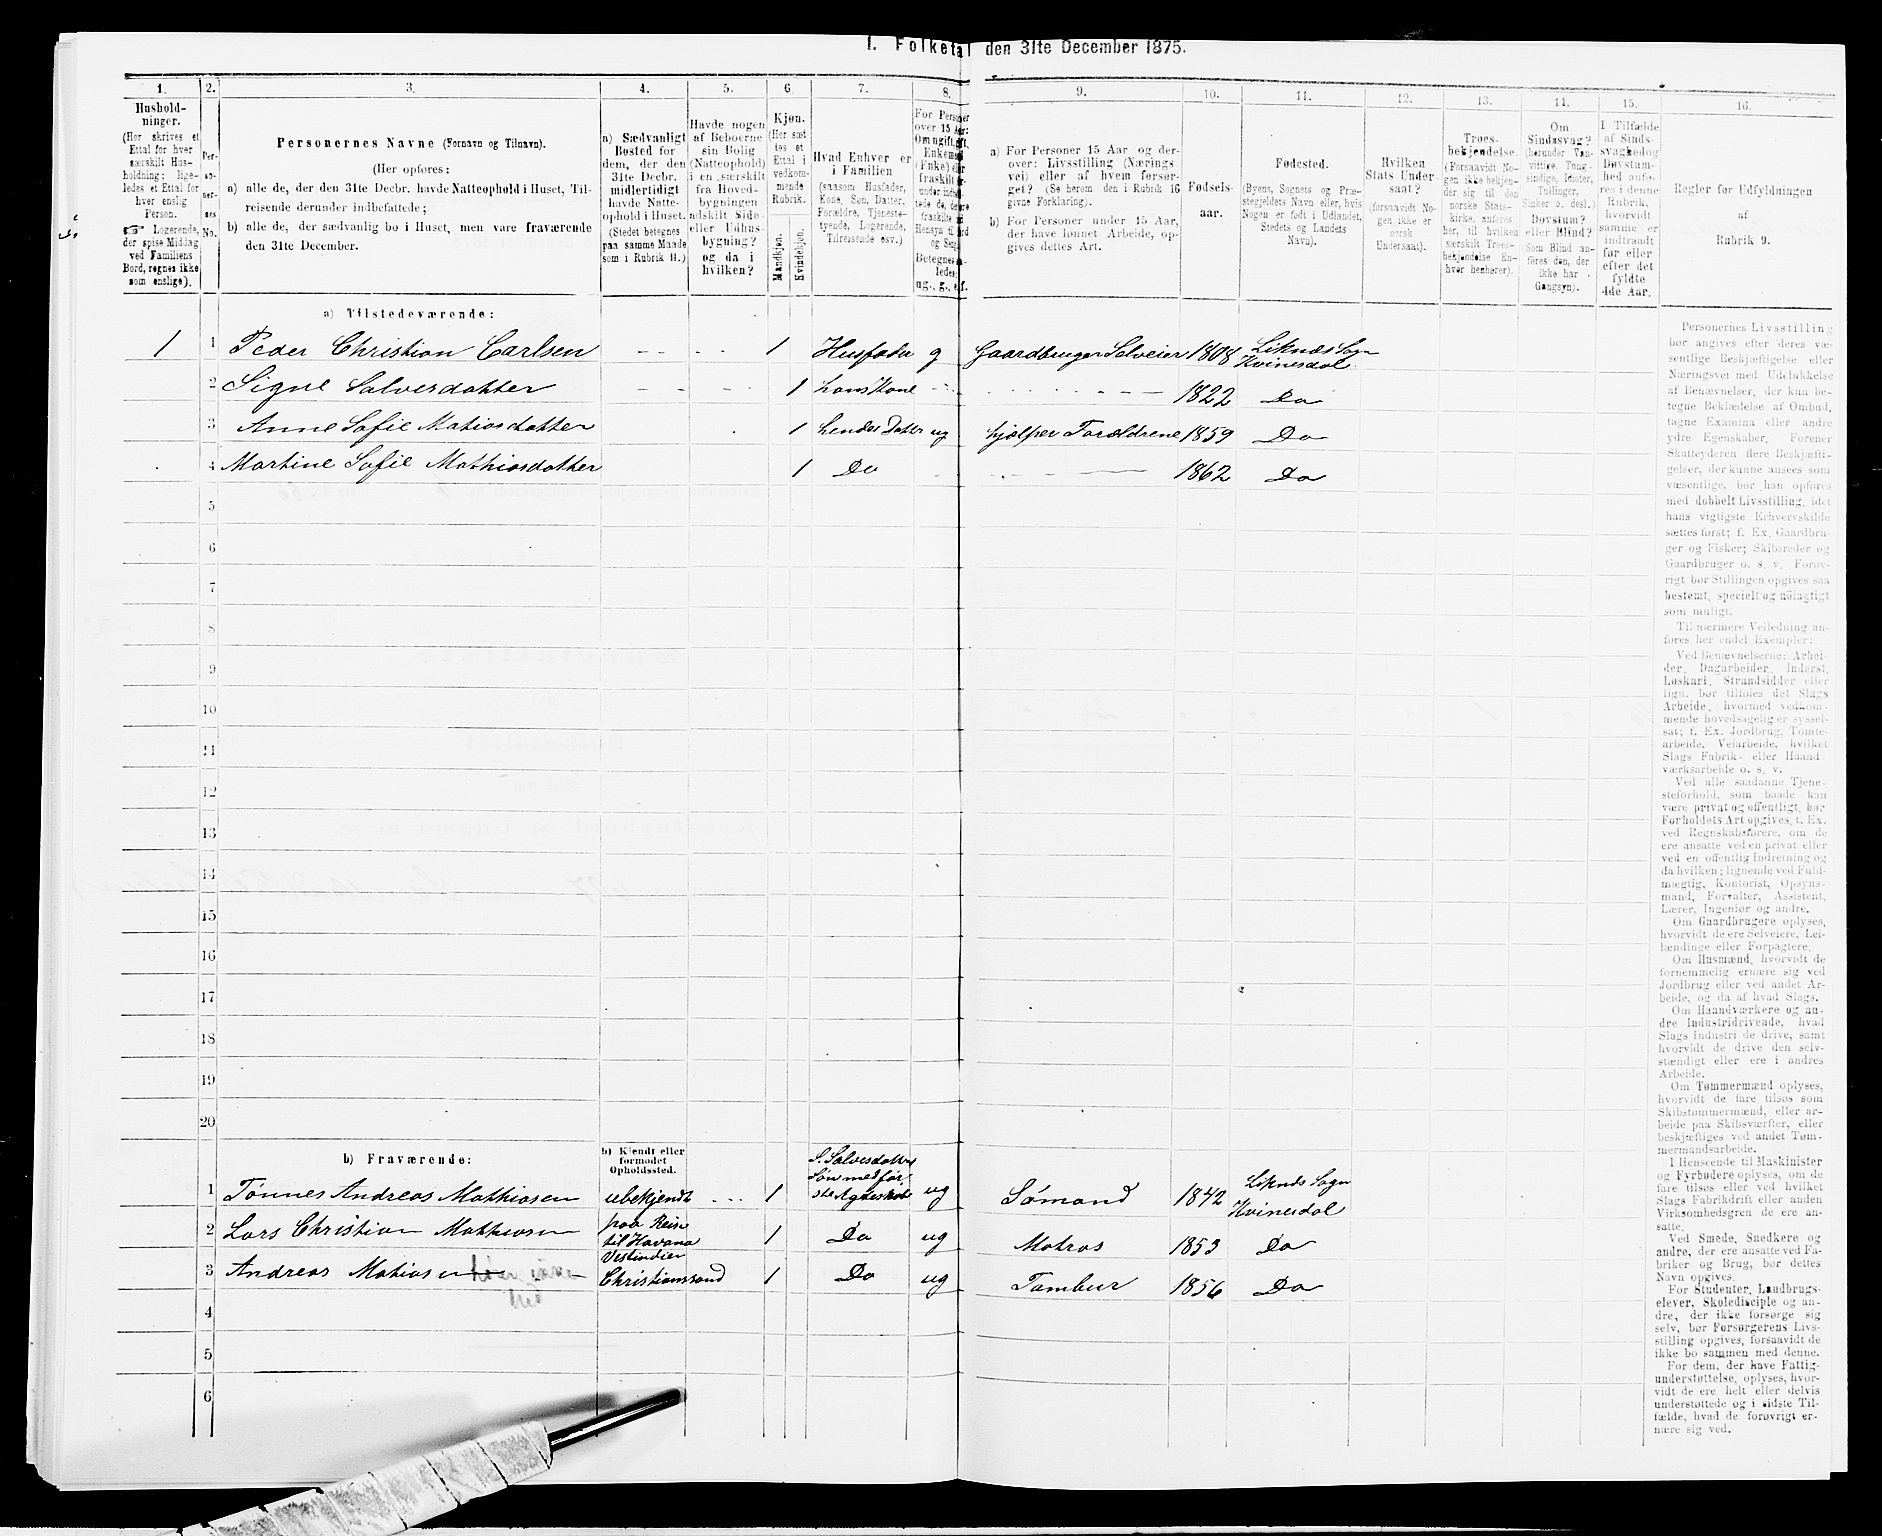 I. Folketal den 31te December 1875.
1.
Hushold-
ninger.
(Her skrives et
Ettal for hver
særskilt Hus-
holdning; lige-
ledes et Ettal for
hver enslig
Person.
☞ Logerende,
der spise Middag
ved Familiens
Bord, regnes ikke
som enslige).
2.
Per-
so-
ner-
nes
No.
3.
Personernes Navne (Fornavn og Tilnavn).
(Her opføres:
a) alle de, der den 31te Decbr. havde Natteophold i Huset, Til-
reisende derunder indbefattede;
b) alle de, der sædvanlig bo i Huset, men vare fraværende
den 31te December.
4.
a) Sædvanligt
Bosted for
dem, der den
31te Decbr.
midlertidigt
havde Natte-
ophold i Huset.
(Stedet betegnes
paa samme Maade
som i Rubrik 11.)
5.
Havde nogen
af Beboerne
sin Bolig
(Natteophold)
i en særskilt
fra Hoved-
bygningen
adskilt Side-
eller Udhus-
bygning?
og da i
hvilken?
6.
Kjøn.
(Her sæt-
tes et
Ettal i
vedkom-
mende
Rubrik.
Mandkjøn.
Kvindekjøn.
7.
Hvad Enhver er
i Familien
(saasom Husfader,
Kone, Søn, Datter,
Forældre, Tjeneste-
tyende, Logerende,
Tilreisende osv.)
8.
For Personer
over 15 Aar:
9.
a) For Personer 15 Aar og der-
over: Livsstilling (Nærings-
vei) eller af hvem forsør-
get? (Se herom den i Rubrik 16
givne Forklaring).
b) For Personer under 15 Aar,
der have lønnet Arbeide, op-
gives dettes Art.
10.
Fødsels-
aar.
11.
Fødested.
(Byens, Sognets og Præ-
stegjeldets Navn eller, hvis
Nogen er født i Udlandet,
Stedets og Landets
Navn).
12.
Hvilken
Stats Under-
saat?
(forsaavidt No-
gen ikke er
norsk
Undersaat).
13.
Troes-
bekjendelse.
(Forsaavidt No-
gen ikke bekjen-
der sig til den
norske Stats-
kirke, anføres
her, til hvilken
særskilt Troes-
bekjendelse En-
hver henhører).
14.
Om
Sindssvag?
(herunder Van-
vittige, Tung-
sindige, Idioter,
Tullinger,
Sinker o. desl.)
Døvstum?
eller Blind?
(Som Blind an-
føres den, der
ikke har
Gangsyn).
15.
I Tilfælde
af Sinds-
svaghed og
Døvstum-
hed anfø-
res i denne
Rubrik,
hvorvidt
samme er
indtraadt
før eller
efter det
fyldte
4de Aar.
16.
Regler før Udfyldningen
af
Rubrik 9.
a) Tilstedeværende:
1 1 Peder Christian Carlsen 1 Husfader g Gaardbruger Selveier 1808 Liknæs Sogn Kvinesdal
2 Signe Salvesdatter 1 hans Kone 1822 Do
3 Anne Sofie Matiasdatter 1 hendes Datter ug hjælper Forældrene 1859 Do
4 Martine Sofie Mathiasdatter 1 Do 1862 Do
5
6
7
8
9
10
11
12
13
14
15
16
17
18
19
20
b) Fraværende:
b) Kjendt eller
formodet
Opholdssted.
1 Tønnes Andreas Mathiasen ubekjendt 1 S. Salvesdatters Søn med første Ægteskab ug Sømand 1842 Liknæs Sogn Kvinesdal
2 Lars Christian Mathiasen paa Reise til Havana Vestindien 1 Do ug Matros 1853 Do
3 Andreas Matiasen Christianssand 1 Do ug Tambur 1856 Do
4
5
6
Personernes Livsstilling
bør angives efter deres væ-
sentlige Beskjæftigelse eller
Næringsvei med Udelukkelse
af Benævnelser, der kun be-
tegne Beklædelse af Ombud,
tagne Examina eller andre
ydre Egenskaber. Forener
Skatteyderen flere Beskjæfti-
gelser, der kunne ansees som
væsentlige, bør han opføres
med dobbelt Livsstilling, idet
hans vigtigste Erhvervskilde
sættes først; f. Ex. Gaardbru-
ger og Fisker; Skibsreder og
Gaardbruger o. s. v. Forøv-
rigt bør Stillingen opgives saa
bestemt, specielt og nöiagtigt
som muligt.
Til nærmere Veiledning an-
føres her endel Exempler:
Ved Benævnelserne: Arbei-
der, Dagarbeider, Inderst,
Løskarl, Strandsidder eller
lign. bør tilføies det Slags
Arbeide, hvormed vedkom-
mende hovedsagelig er syssel-
sat; f. Ex. Jordbrug, Tomte-
arbeide, Veiarbeide, hvilket
Slags Fabrik- eller Haand-
værksarbeide o. s. v.
Ved alle saadanne Tjene-
steforhold, som baade kan
være privat og offentligt, bør
Forholdets Art opgives, t. Ex.
ved Regnskabsførere, om de
ere ansatte ved en privat eller
ved en offentlig Indretning og
da hvilken; lignende ved Fuld-
mægtig, Kontorist, Opsyns-
mand, Forvalter, Assistent,
Lærer, Ingeniør og andre.
Om Gaardbrugere oplyses,
hvorvidt de ere Selveiere, Lei-
lændinge eller Forpagtere.
Om Husmænd, hvorvidt de
fornemmelig ernære sig ved
Jordbrug eller ved andet Ar-
beide, og da af hvad Slags.
Om Haandværkere og an-
dre Industridrivende, hvad
Slags Industri de drive, samt
hvorvidt de drive den selv-
stændigt eller ere i andres
Arbeide.
Om Tømmermænd oplyses,
hvorvidt de fare tilsøs som
Skibstømmermænd, eller ar-
beide paa Skibsværfter, eller
beskjæftiges ved andet Tøm-
mermandsarbeide.
I Henseende til Maskinister
og Fyrbødere oplyses, om de
fare tilsøs eller ved hvilket
Slags Fabrikdrift eller anden
Virksomhedsgren de ere an-
satte.
Ved Smede, Snedkere og
andre, der ere ansatte ved Fa-
briker og Brug, bør dettes
Navn opgives.
For Studenter, Landbrugs-
elever, Skoledisciple og an-
dre, der ikke forsørge sig
selv, bør Forsørgerens Livs-
stilling opgives, forsaavidt de
ikke bo sammen med denne.
For dem, der have Fattig-
understøttelse, oplyses, hvor-
vidt de ere helt eller delvis
understøttede og i sidste Til-
fælde, hvad de forøvrigt er-
nære sig ved.